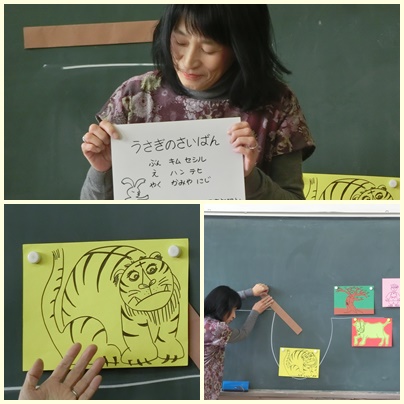 うさぎのさいばん
ぶん キム セシル
え ハン テヒ
やく かみや にじ